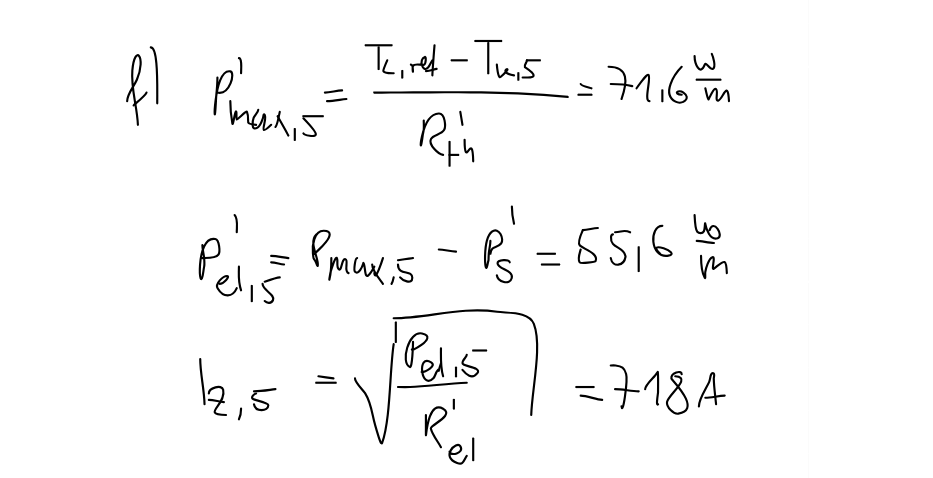 f) P'max,5 = (TL,ref - Tu,5) / R'th = 71,6 W/m
P'el,5 = Pmax,5 - P's = 55,6 W/m
Iz,5 = √(Pel,5 / R'el) = 718A